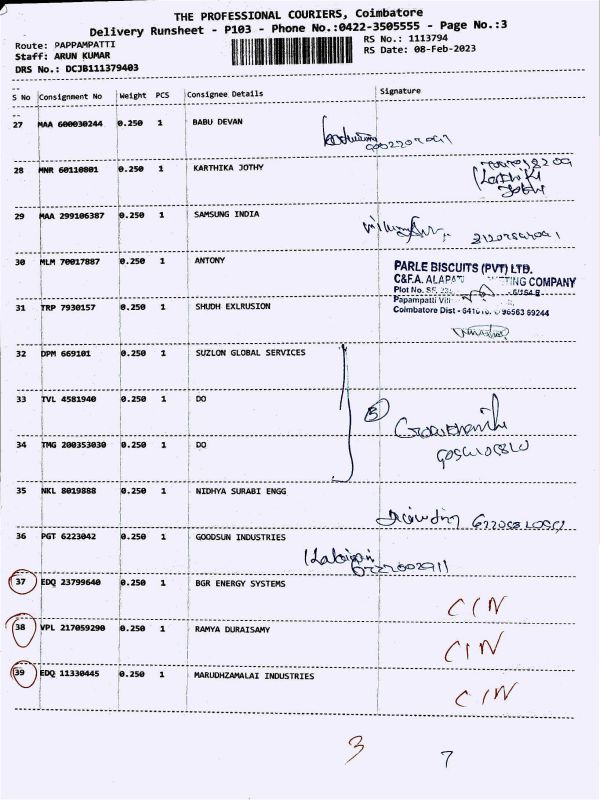 THE PROFESSIONAL COURIERS, Coimbatore
Delivery Runsheet - P103 - Phone No.:0422-3505555 - Page No.:3
Route: PAPPAMPATTI
RS No.: 1113794
Staff: ARUN KUMAR
RS Date: 08-Feb-2023
DRS No.: DCJB111379403
S No Consignment No Weight PCS Consignee Details Signature
27 MAA 600030244 0.250 1 BABU DEVAN
28 MNR 60110801 0.250 1 KARTHIKA JOTHY
29 MAA 299106387 0.250 1 SAMSUNG INDIA
30 MLM 70017887 0.250 1 ANTONY
PARLE BISCUITS (PVT) LTD.
C&F.A. ALAPATT TING COMPANY
Plot No. SF.
Papampatti Vill
31 TRP 7930157 0.250 1 SHUDH EXLRUSION
Coimbatore Dist 96563 89244
32 DPM 669101 0.250 1 SUZLON GLOBAL SERVICES
33 TVL 4581940 0.250 1 DO
3
34 TMG 200353030 0.250 1 DO
35 NKL 8019888 0.250 1 NIDHYA SURABI ENGG
36 PGT 6223042 0.250 1 GOODSUN INDUSTRIES
37 EDQ 23799640 0.250 1 BGR ENERGY SYSTEMS
CIN
38 VPL 217059290 0.250 1 RAMYA DURAISAMY
CIN
39 EDQ 11330445 0.250 1 MARUDHZAMALAI INDUSTRIES
CIN
3 7